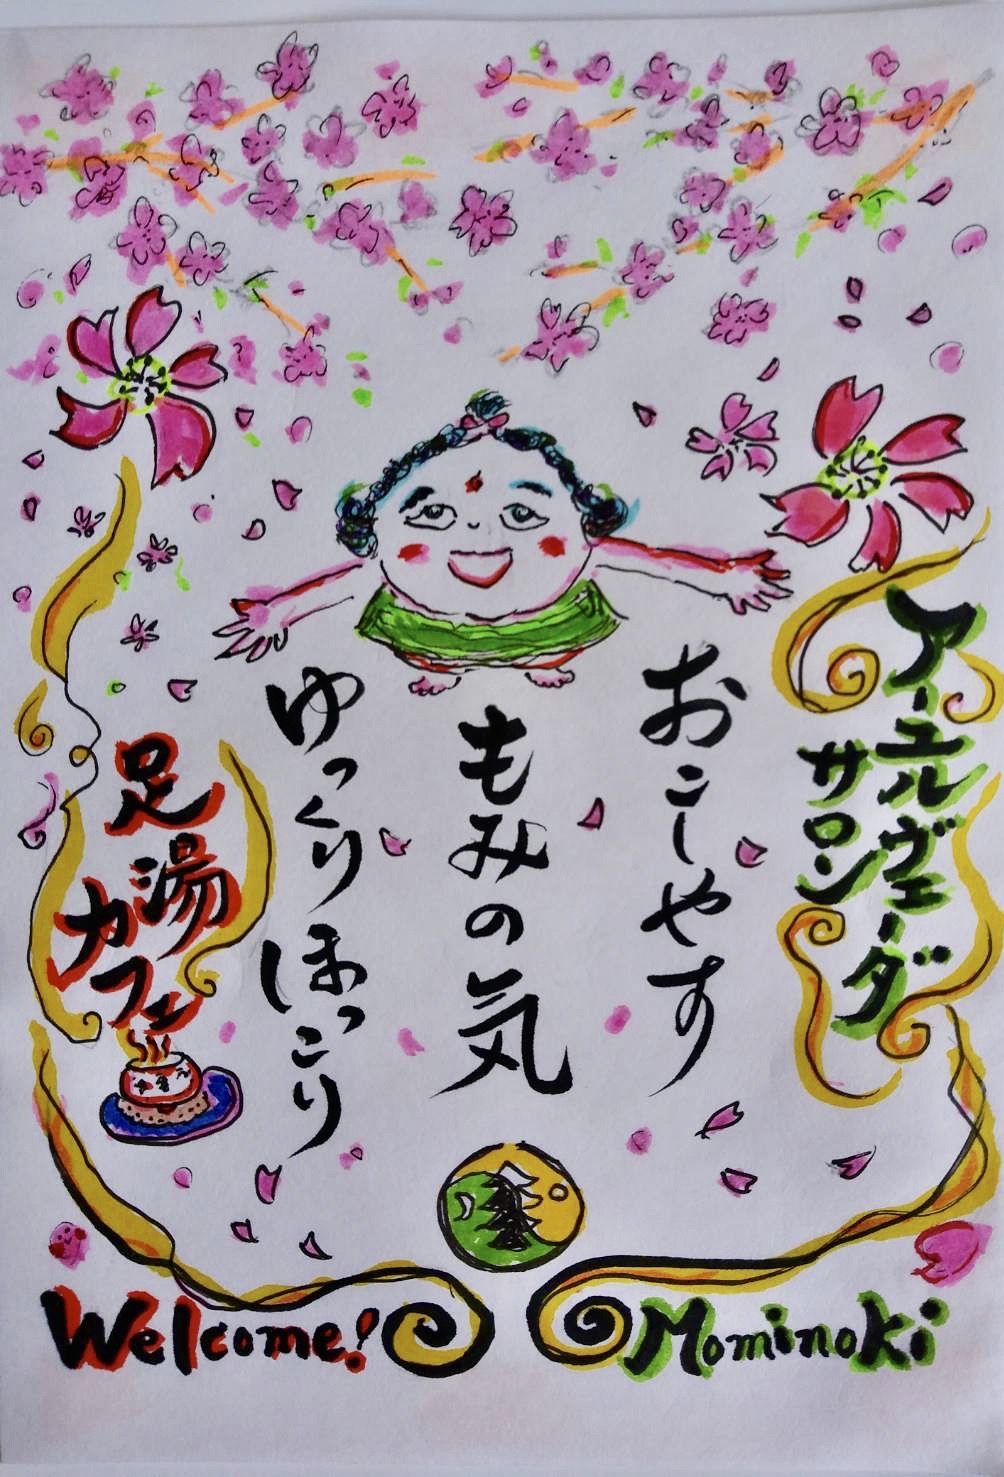 アーユルヴェーダ
サロン
おこしやす
もみの気
ゆっくりほっこり
足湯
カフェ
Welcome! Mominoki